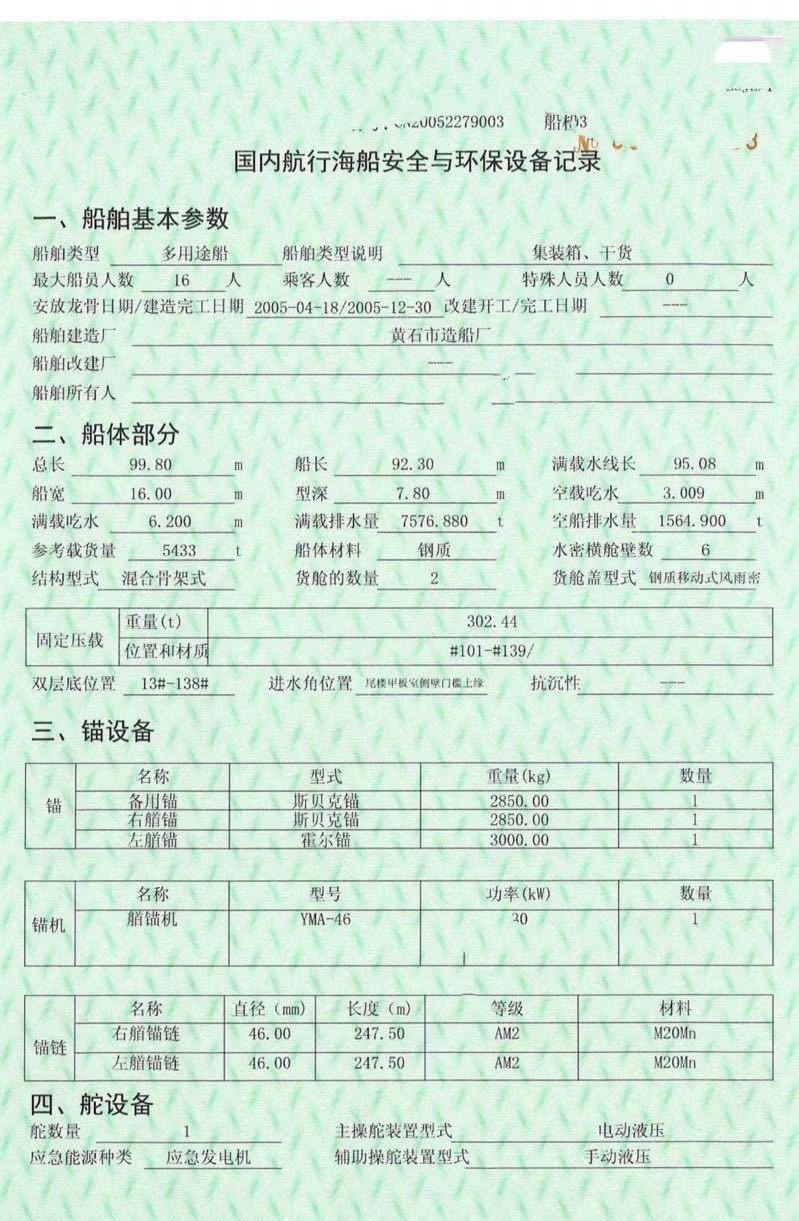 CN20052279003 船检3
No
国内航行海船安全与环保设备记录
一、船舶基本参数
船舶类型 多用途船 船舶类型说明 集装箱、干货
最大船员人数 16 人 乘客人数 --- 人 特殊人员人数 0 人
安放龙骨日期/建造完工日期 2005-04-18/2005-12-30 改建开工/完工日期 ---
船舶建造厂 黄石市造船厂
船舶改建厂 ---
船舶所有人
二、船体部分
总长 99.80 m 船长 92.30 m 满载水线长 95.08 m
船宽 16.00 m 型深 7.80 m 空载吃水 3.009 m
满载吃水 6.200 m 满载排水量 7576.880 t 空船排水量 1564.900 t
参考载货量 5433 t 船体材料 钢质 水密横舱壁数 6
结构型式 混合骨架式 货舱的数量 2 货舱盖型式 钢质移动式风雨密
固定压载 重量(t) 302.44
位置和材质 #101-#139/
双层底位置 13#-138# 进水角位置 尾楼甲板室侧壁门槛上缘 抗沉性 ---
三、锚设备
锚 名称 型式 重量(kg) 数量
备用锚 斯贝克锚 2850.00 1
右艏锚 斯贝克锚 2850.00 1
左艏锚 霍尔锚 3000.00 1
锚机 名称 型号 功率(kW) 数量
艏锚机 YMA-46 30 1
锚链 名称 直径（mm) 长度（m) 等级 材料
右艏锚链 46.00 247.50 AM2 M20Mn
左艏锚链 46.00 247.50 AM2 M20Mn
四、舵设备
舵数量 1 主操舵装置型式 电动液压
应急能源种类 应急发电机 辅助操舵装置型式 手动液压